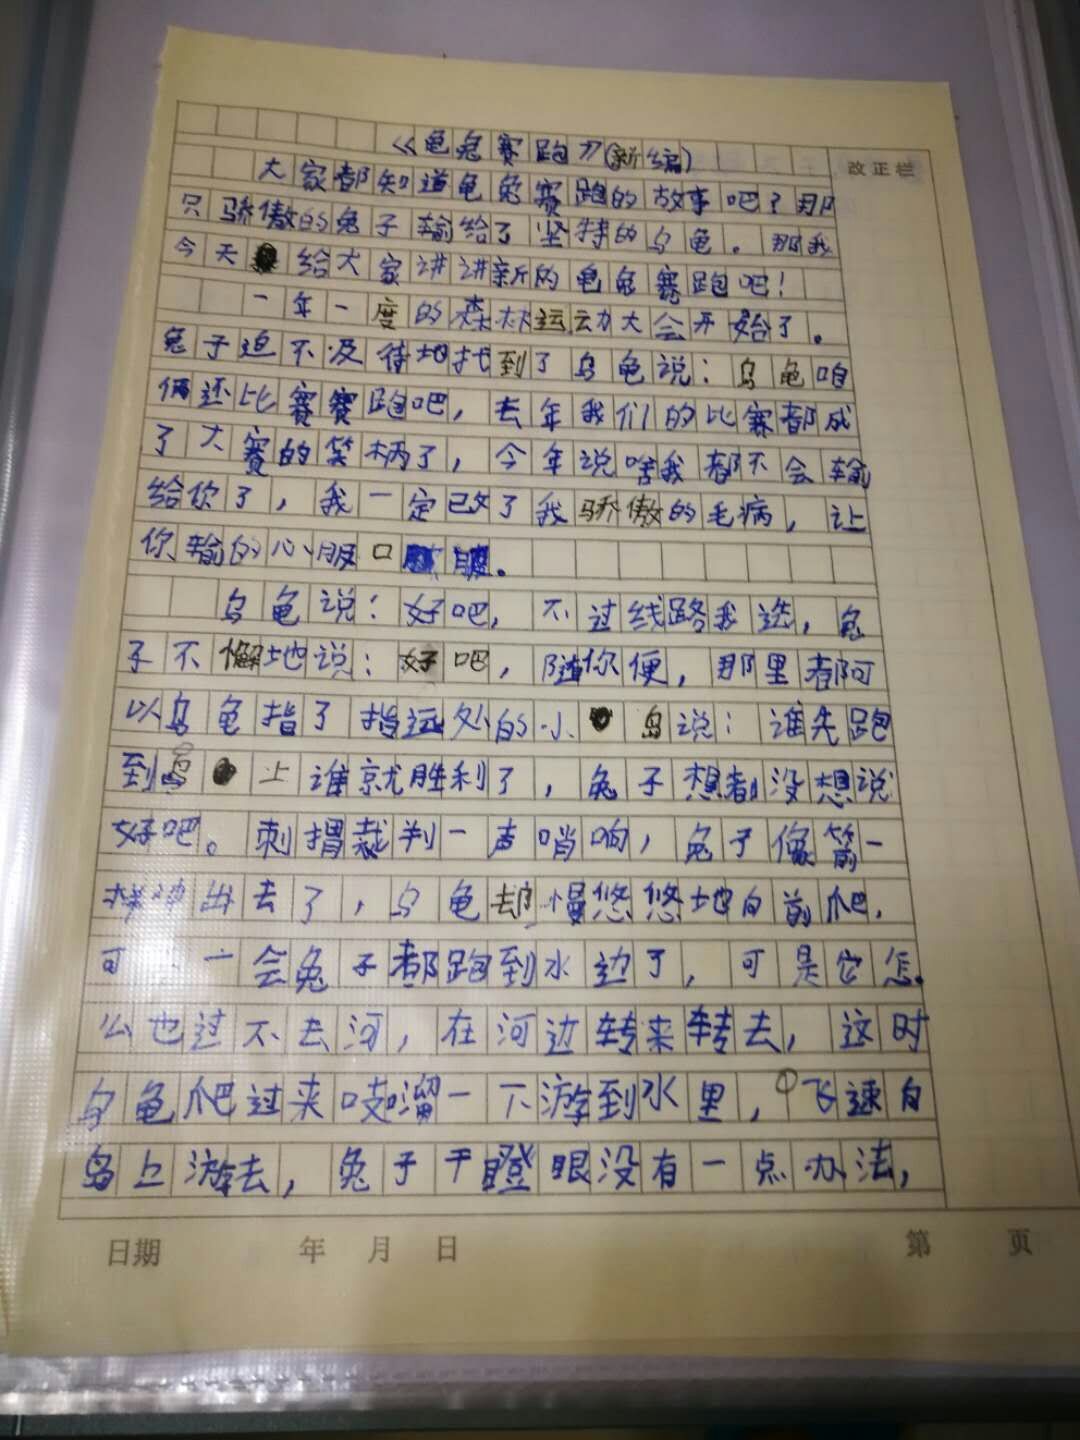 《龟兔赛跑》(新编)
改正栏
大家都知道龟兔赛跑的故事吧？那
只骄傲的兔子输给了坚持的乌龟。那我
今天给大家讲讲新的龟兔赛跑吧！
一年一度的森林运动大会开始了。
兔子迫不及待地找到了乌龟说：乌龟咱
俩还比赛赛跑吧，去年我们的比赛都成
了大赛的笑柄了，今年说啥我都不会输
给你了，我一定改了我骄傲的毛病，让
你输的心服口服。
乌龟说：好吧，不过线路我选，兔
子不懈地说：好吧，随你便，那里都可
以乌龟指了指远处的小岛说：谁先跑
到岛上谁就胜利了，兔子想都没想说
好吧。刺猬裁判一声哨响，兔子像箭一
样冲出去了，乌龟却慢悠悠地向前爬，
可一会兔子都跑到水边了，可是它怎
么也过不去河，在河边转来转去，这时
乌龟爬过来吱溜一下游到水里，飞速向
岛上游去，兔子干瞪眼没有一点办法，
日期 年 月 日 第 页